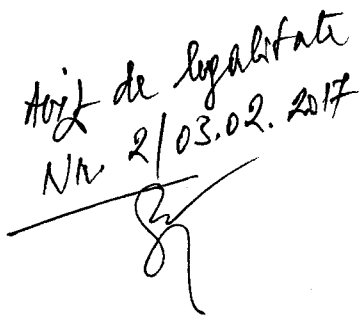 Aviz de legalitate
Nr. 2/03.02.2017